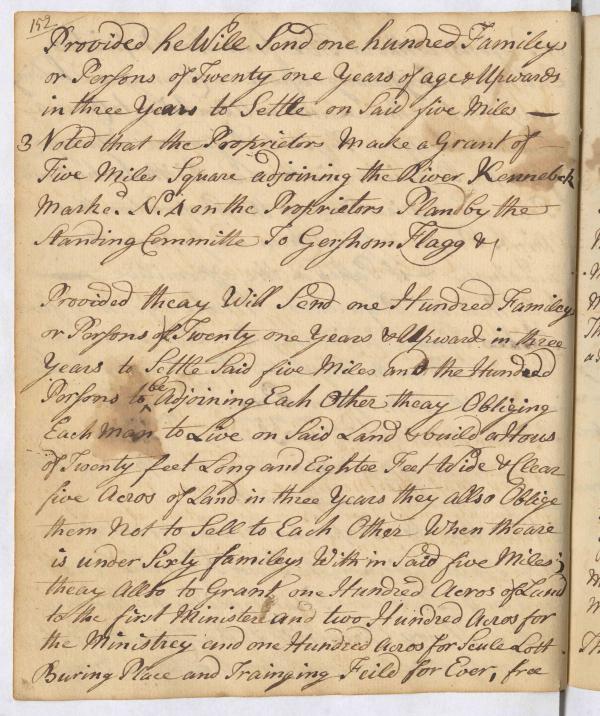 152
Provided he Will Send one hundred Famileys
or Persons of Twenty one Years of age & Upwards
in three Years to Settle on Said five Miles —
3 Voted that the Proprietors Make a Grant of
Five Miles Square adjoining the River Kennebek
Marked N. 4 on the Proprietors Pland by the
Standing Committe To Gershom Flagg &
Provided theay Will Send one Hundred Famileys
or Persons of Twenty one Years & Upward in three
Years to Settle Said five Miles and the Hundred
Persons to be Adjoining Each Other theay Obliging
Each man to Live on Said Land & build a Hous
of Twenty feet Long and Eightee Feet Wide & Clear
five Acros of Land in three Years they allso Oblige
them Not to Sell to Each Other When theare
is under Sixty famileys With in Said five Miles;
theay Allso to Grant one Hundred Acros of Land
to the first Minister and two Hundred Acros for
the Ministrey and one Hundred Acros for Scule Lott
Buring Place and Trainging Feild for Ever, free